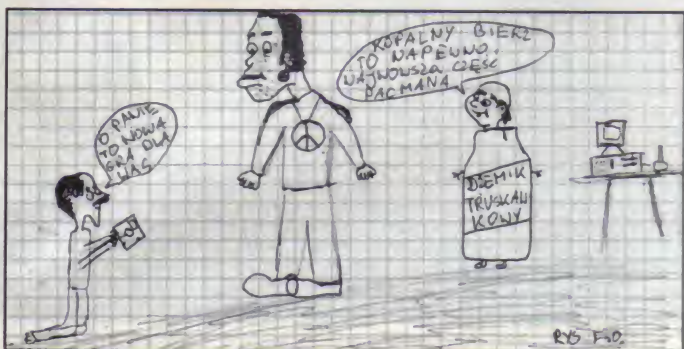 O PANIE
TO NOWA
GRA DLA
WAS
KOPALNY BIERZ
TO NAPEWNO
NAJNOWSZA CZĘŚĆ
PACMANA
DŻEMIK
TRUSKAW
KOWY
RYS